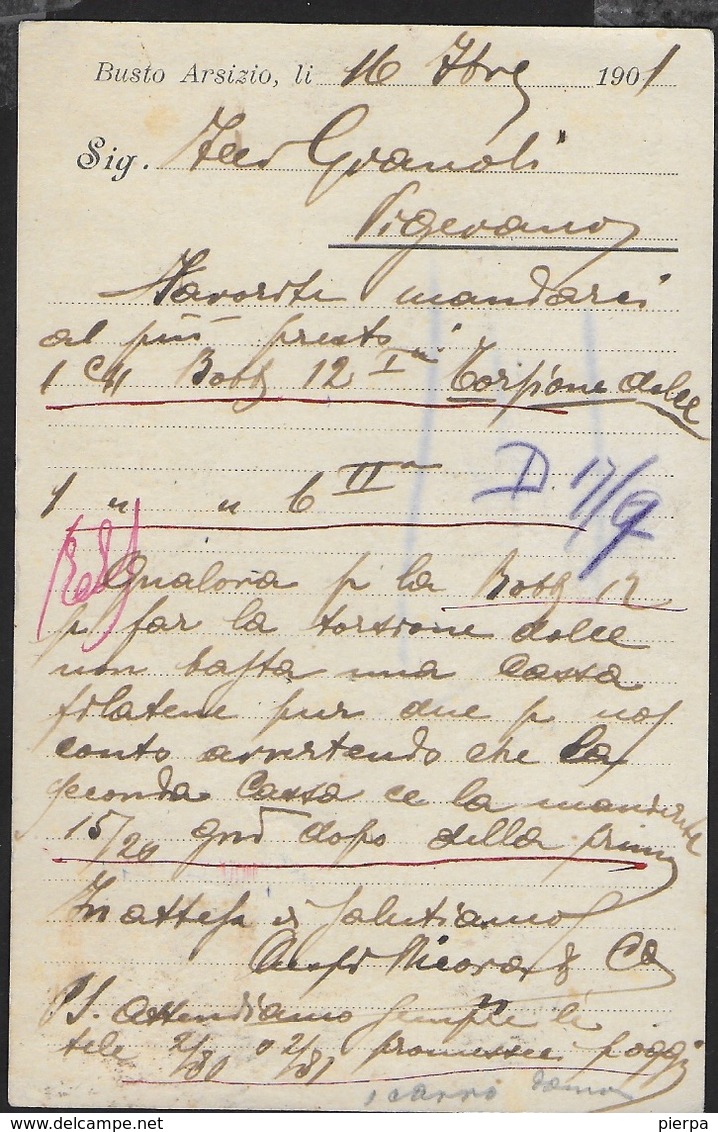 Busto Arsizio, li 16 7bre 1901
Sig. Granoli
Vigevano
Favorite mandarci
al più presto
1 Cˢˢ 12 Iᵐᵃ Torsione dolce
1 " " 6 IIᵃ
D 17/9
Qualora p la 12
p far la torsione dolce
non basta una Cassa
filatene pur due p nos
conto avvertendo che la
seconda Cassa ce la manderete
15/20 gni dopo della prima
In attesa vi salutiamo
& Co
PS. Attendiamo sempre le
tele 2/80 o 2/81 promesse
1 carro
pierpa
delcampe.net